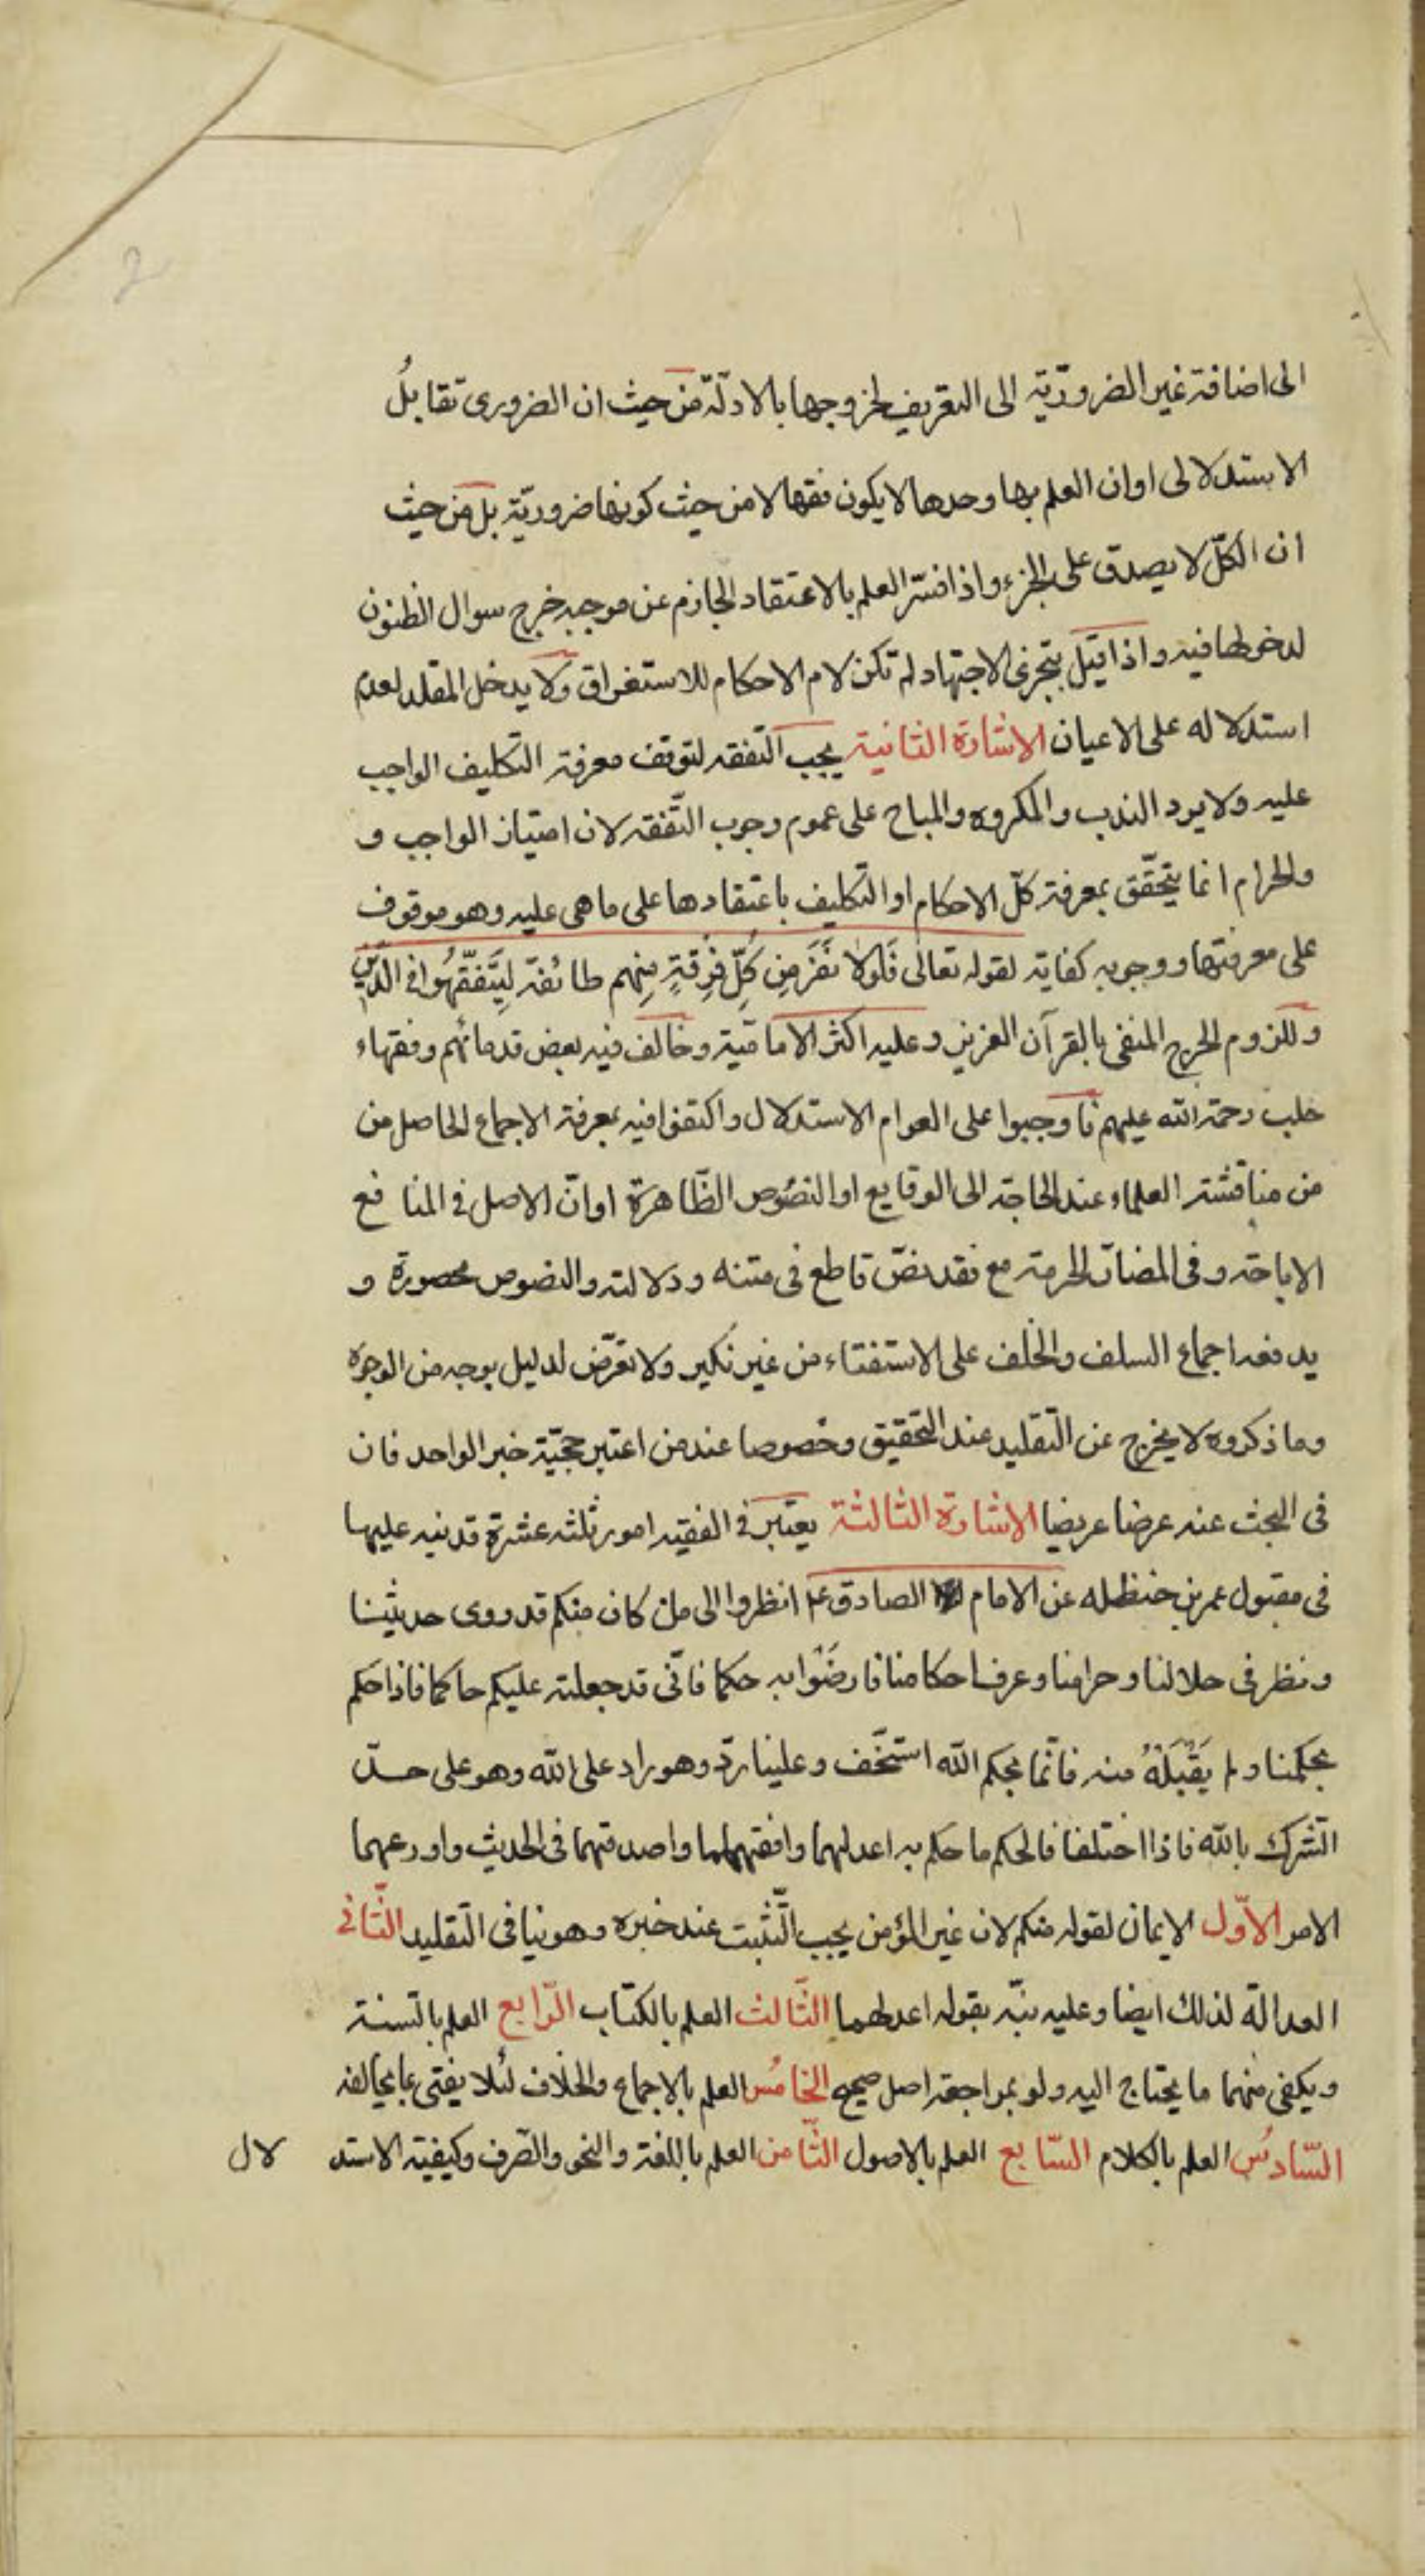 2
الى اضافة غير الضروريّة الى التعريف لخروجها بالادلّة من حيث ان الضرورى تقابلُ
الاستدلالى او ان العلم بها وحدها لا يكون فقها لا من حيث كونها ضروريّة بل من حيث
ان الكلّ لا يصدق على الجزء واذا فسّر العلم بالاعتقاد الجازم عن موجبه خرج سوال الظنون
لدخولها فيه واذا قيل بتجزى الاجتهاد لم تكن لام الاحكام للاستغراق ولا يدخل المقلد لعدم
استدلاله على الاعيان الاشارة الثانية يجب التفقه لتوقف معرفة التكليف الواجب
عليه ولا يرد الندب والمكروه والمباح على عموم وجوب التّفقه لان امتياز الواجب و
والحرام انما يتحقّق بمعرفة كلّ الاحكام او التكليف باعتقادها على ما هى عليه وهو موقوف
على معرفتها ووجوبه كفاية لقوله تعالى فَلَولا نَفَرَ مِن كُلّ فِرقَةٍ مِنهم طائفة لِيَتَفَقَّهُوا فى الدّين
وللزوم الحرج المنفى بالقرآن العزيز وعليه اكثر الاماميّة وخالف فيه بعض قدمائهم وفقهاء
حلب رحمة الله عليهم فاوجبوا على العوام الاستدلال واكتفوا فيه بمعرفة الاجماع الحاصل من
من مناقشة العلماء عند الحاجة الى الوقايع او النصُوص الظّاهرة او انّ الاصل فى المنافع
الاباحة وفى المضارّ الحرمة مع فقد نصّ قاطع فى متنه ودلالته والنصوص محصورة و
يدفعه اجماع السلف والخلف على الاستفتاء من غير نكير ولا تعرّض لدليل بوجه من الوجوه
وما ذكروه لا يخرج عن التّقليد عند التّحقيق وخصوصا عند من اعتبر حجيّة خبر الواحد فان
فى البحث عنه عرضا عريضا الاشارة الثالثة يعتبر فى الفقيه امور ثلثه عشرة قد نبه عليها
فى مقبول عمر بن حنظله عن الامام الصادق ع انظروا الى من كان منكم قد روى حديثنا
ونظر فى حلالنا وحرامنا وعرف احكامنا فارضَوْا به حكما فانّى قد جعلته عليكم حاكما فاذا حكم
بحكمنا ولم يَقْبَلْهُ منه فانّما بحكم الله استخّف وعلينا ردّ وهو راد على الله وهو على حدّ
الشّرك بالله فاذا اختلفا فالحكم ما حكم به اعدلهما وافقههما واصدقهما فى الحديث واورعهما
الامر الاوّل الايمان لقوله منكم لان غير المؤمن يجب التّثبت عند خبره وهو ينافى التّقليد الثّانى
العدالة لذلك ايضا وعليه نبّه بقوله اعدلهما الثّالث العلم بالكتاب الرّابع العلم بالسّنة
ويكفى منهما ما يحتاج اليه ولو بمراجعة اصل صحيح الخامُس العلم بالاجماع والخلاف لئلا يفتى بما يخالفه
السّادسُ العلم بالكلام السّابع العلم بالاصول الثّامن العلم باللغة والنحو والصّرف وكيفية الاستد لال